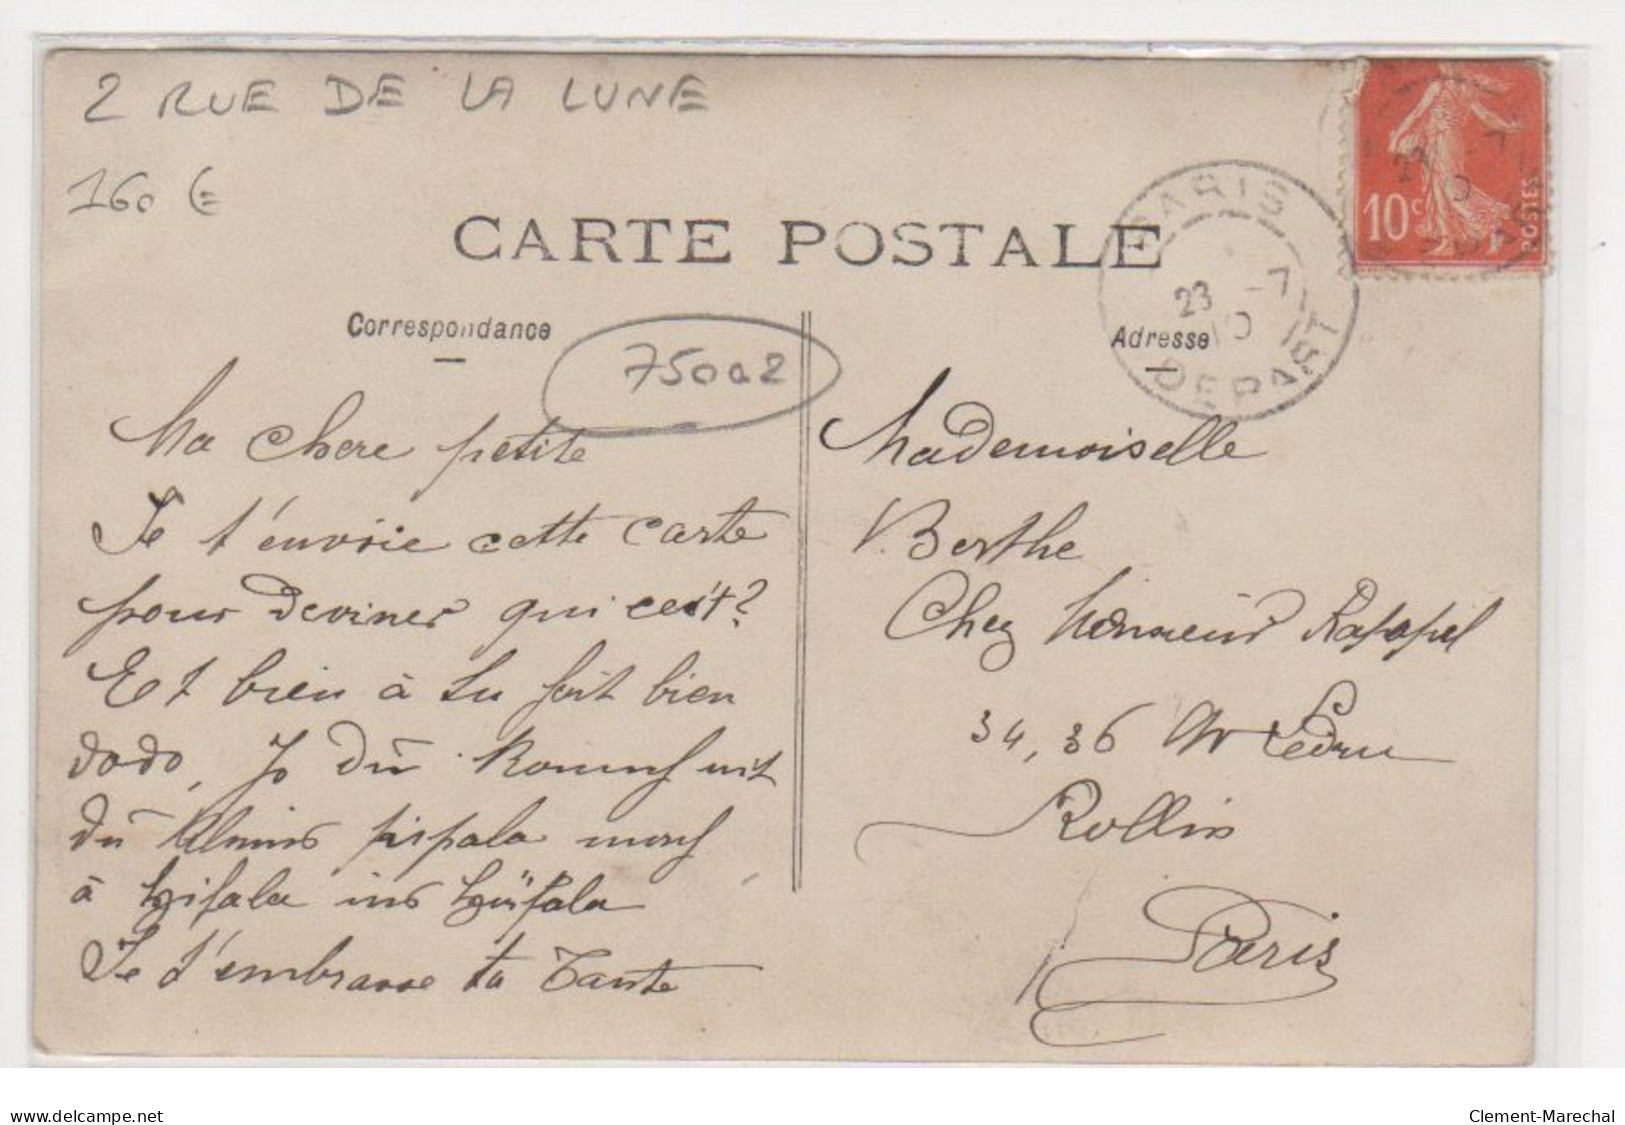 2 RUE DE LA LUNE
160 €
CARTE POSTALE
PARIS
23 -7
10
DEPART
10c
POSTES
Correspondance
75002
Adresse
Ma chere petite
Je t'envoie cette carte
pour deviner qui cest?
Et bien à tu fait bien
dodo,
du pipala
à
Je t'embrasse ta Tante
Mademoiselle
Berthe
Chez Monsieur
34, 36 Av Ledru
Rollin
Paris
www.delcampe.net
Clement-Marechal